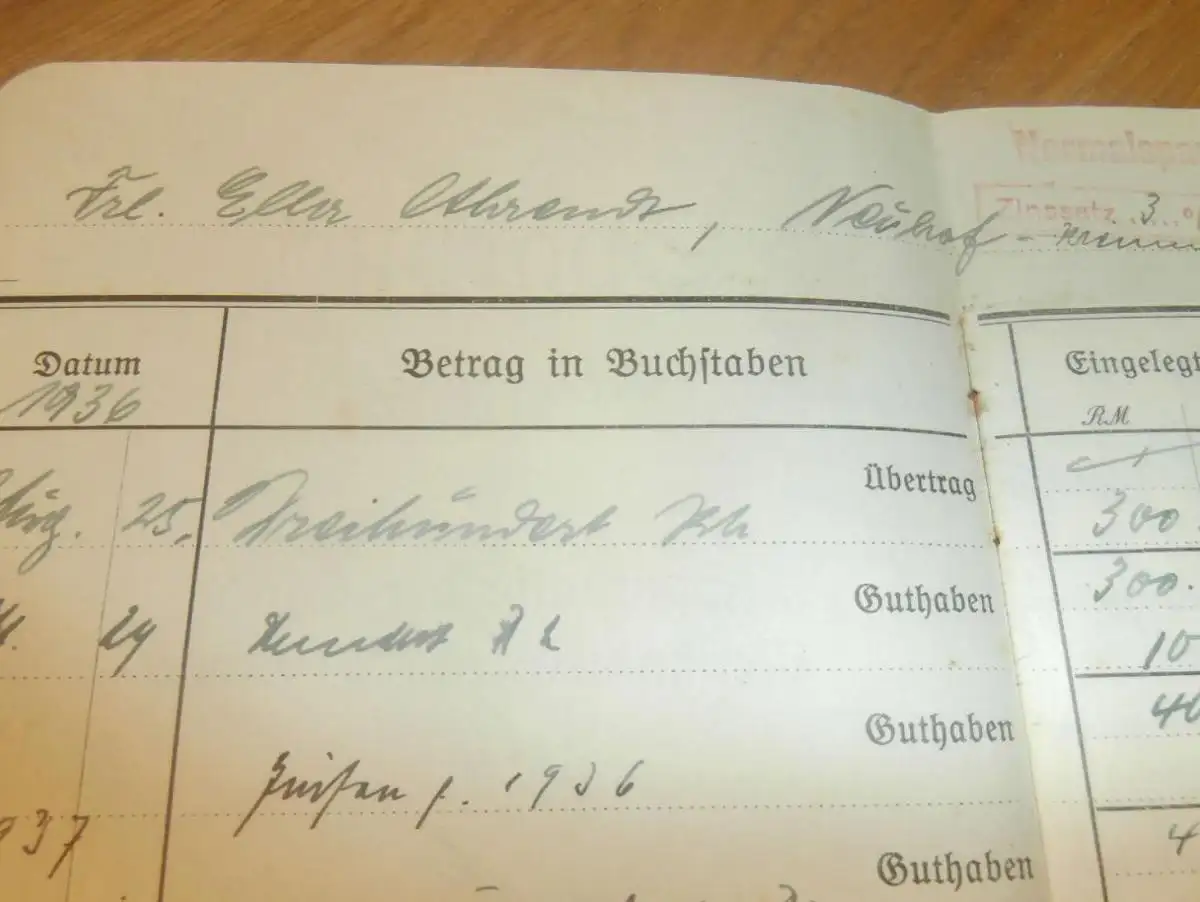 Normalspar
Frl. Ella Ahrendt, Neuhof -
Zinssatz 3 %
Datum Betrag in Buchstaben Eingelegt
1936 RM
Übertrag
Aug. 25. Dreihundert Rℳ 300
Guthaben 300.
29 Hundert 10
Guthaben 40
Zinsen f. 1936
937 Guthaben 4